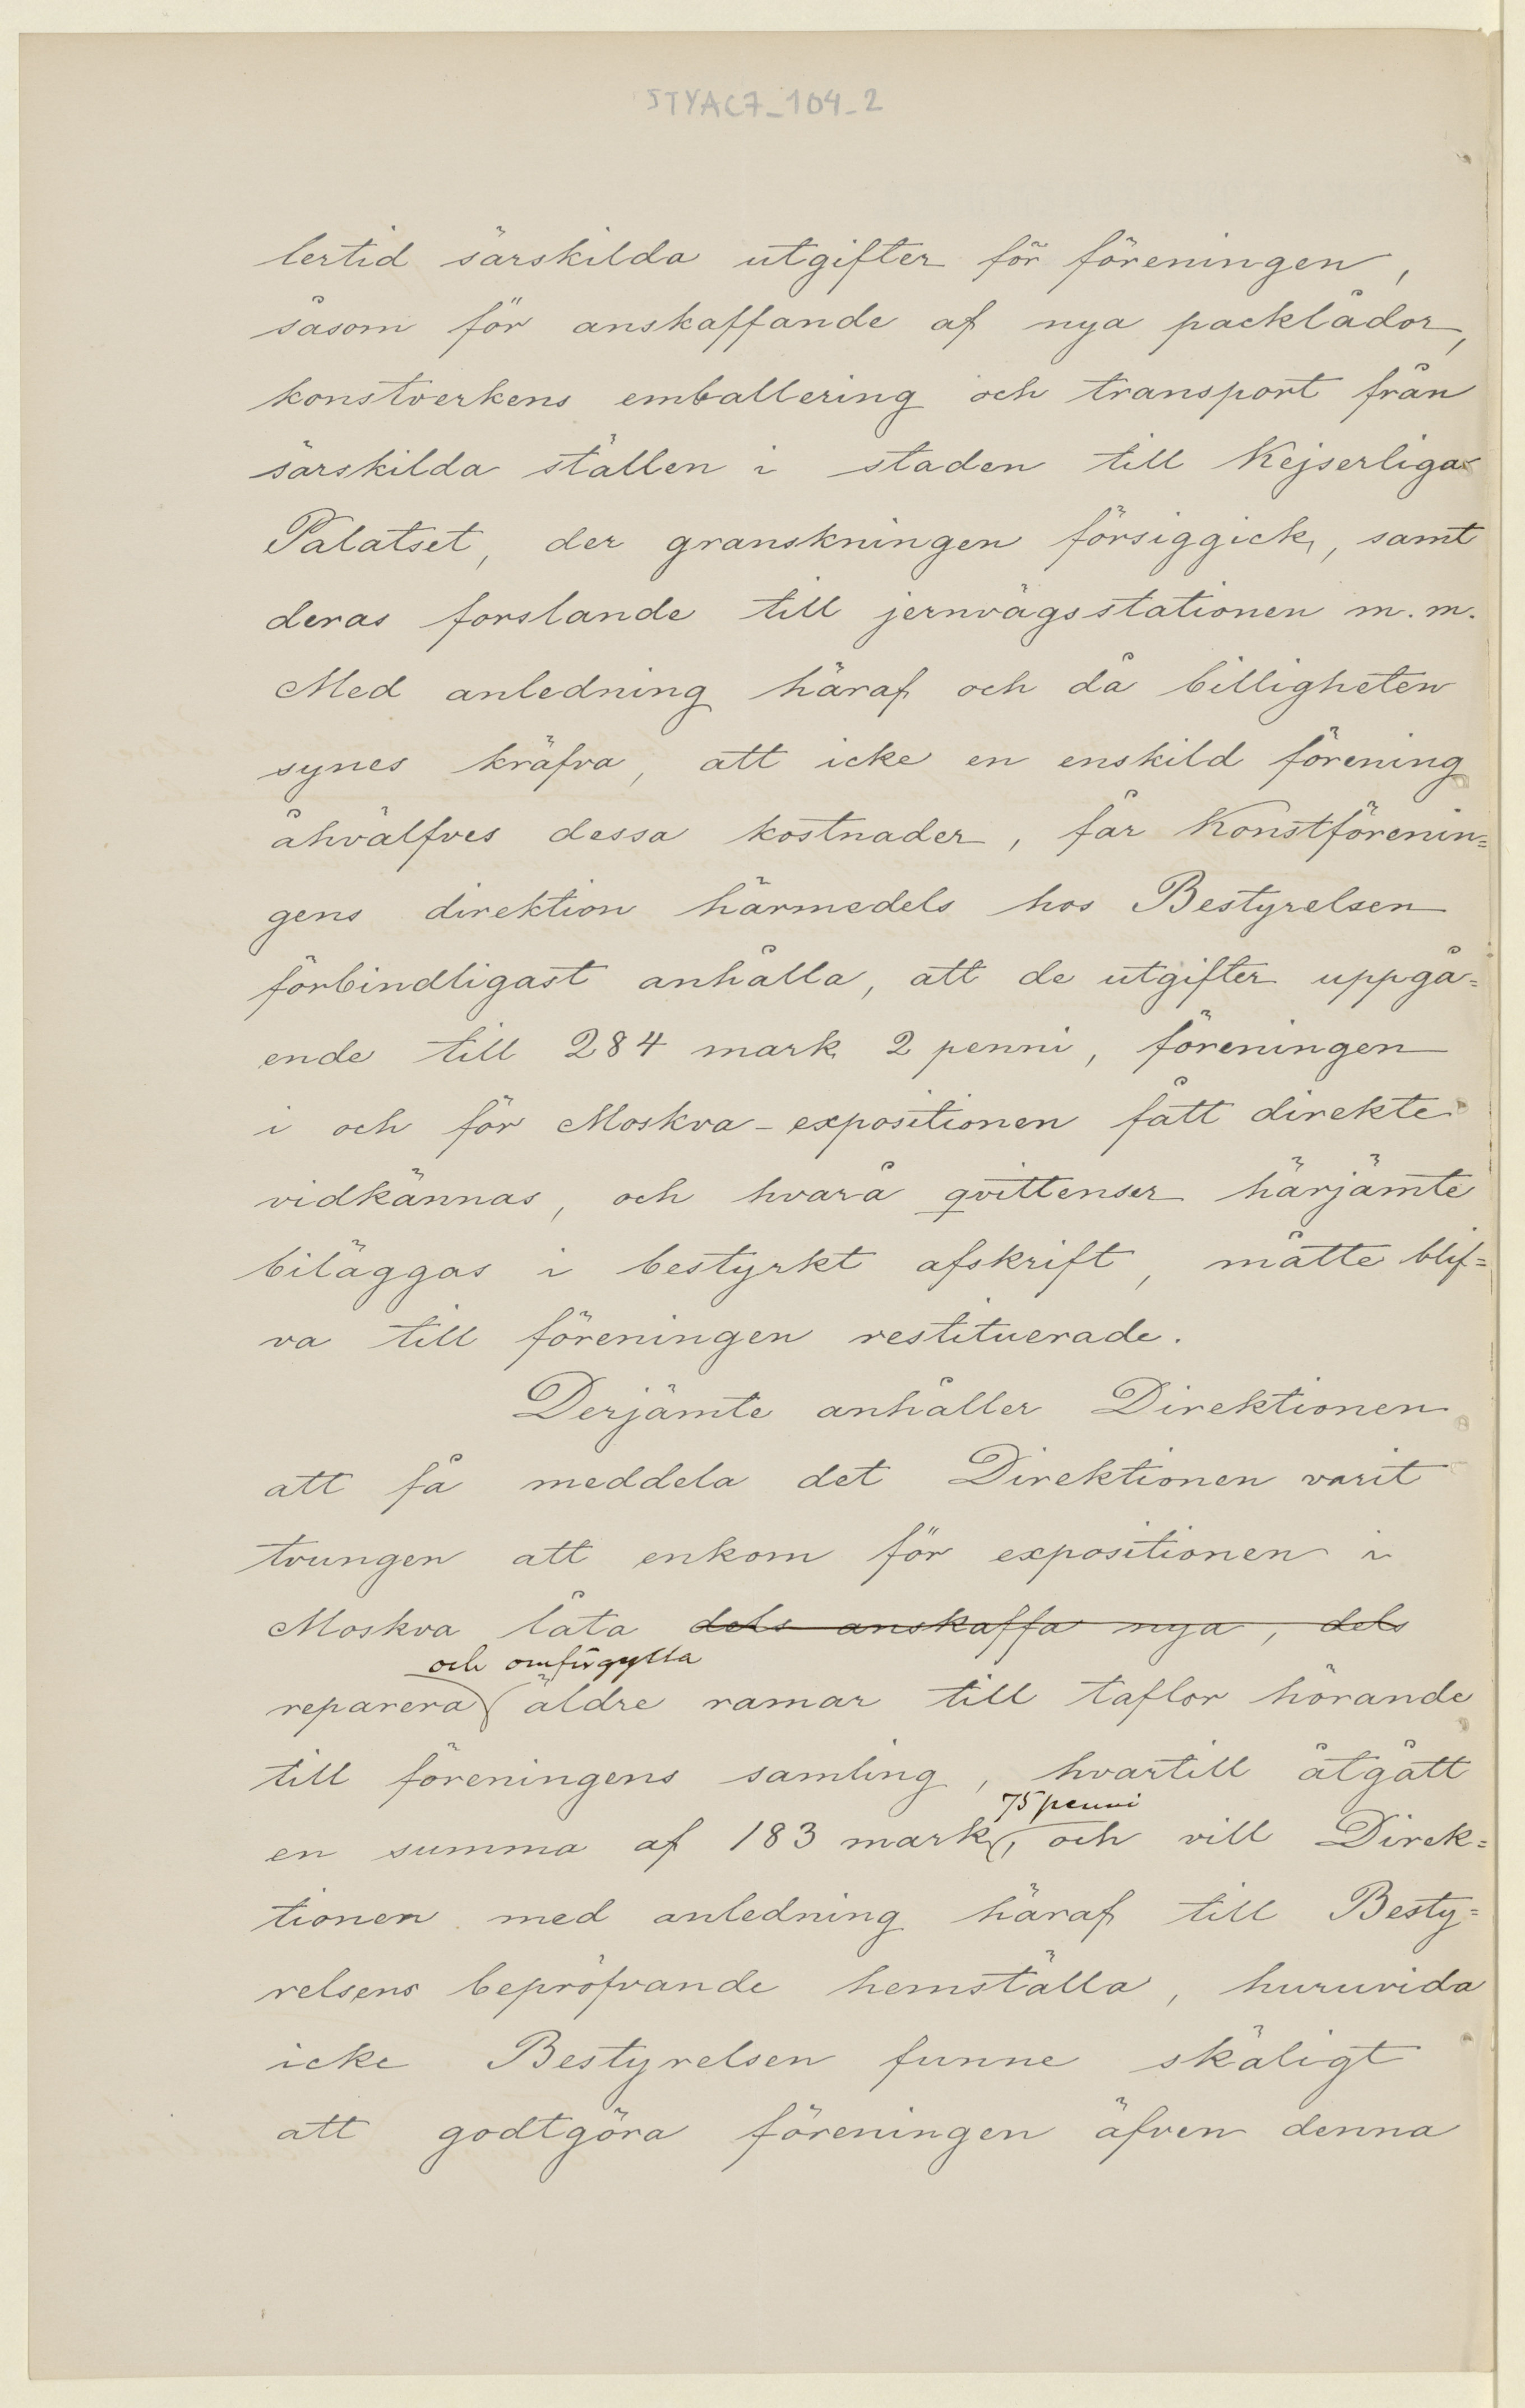 STYAC7_104_2
lertid särskilda utgifter för föreningen,
såsom för anskaffande af nya packlådor,
konstverkens emballering och transport från
särskilda ställen i staden till Kejserliga
Palatset, der granskningen försiggick, samt
deras forslande till jernvägsstationen m. m.
Med anledning häraf och då billigheten
synes kräfva, att icke en enskild förening
åhvälfves dessa kostnader, får Konstförenin=
gens direktion härmedels hos Bestyrelsen
förbindligast anhålla, att de utgifter uppgå=
ende till 284 mark 2 penni, föreningen
i och för Moskva-expositionen fått direkte
vidkännas, och hvarå qvittenser härjämte
biläggas i bestyrkt afskrift, måtte blif=
va till föreningen restituerade.
Derjämte anhåller Direktionen
att få meddela det Direktionen varit
tvungen att enkom för expositionen i
Moskva låta dels anskaffa nya, dels
och omförgylla
reparera äldre ramar till taflor hörande
till föreningens samling, hvartill åtgått
75 penni
en summa af 183 mark, och vill Direk=
tionen med anledning häraf till Besty=
relsens bepröfvande hemställa, huruvida
icke Bestyrelsen funne skäligt
att godtgöra föreningen äfven denna